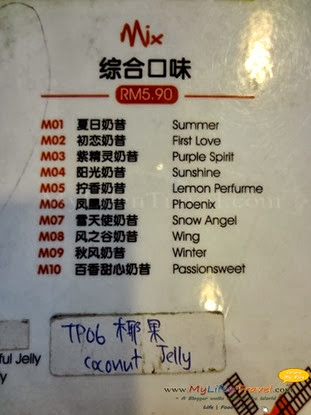 Mix
综合口味
RM5.90
M01 夏日奶昔 Summer
M02 初恋奶昔 First Love
M03 紫精灵奶昔 Purple Spirit
M04 阳光奶昔 Sunshine
M05 拧香奶昔 Lemon Perfurme
M06 凤凰奶昔 Phoenix
M07 雪天使奶昔 Snow Angel
M08 风之谷奶昔 Wing
M09 秋风奶昔 Winter
M10 百香甜心奶昔 Passionsweet
TP06 椰果
Coconut Jelly
ful Jelly
www.MyLifeTravel.com